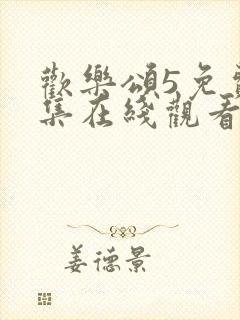 歡樂頌5免費
集在綫觀看
姜德景